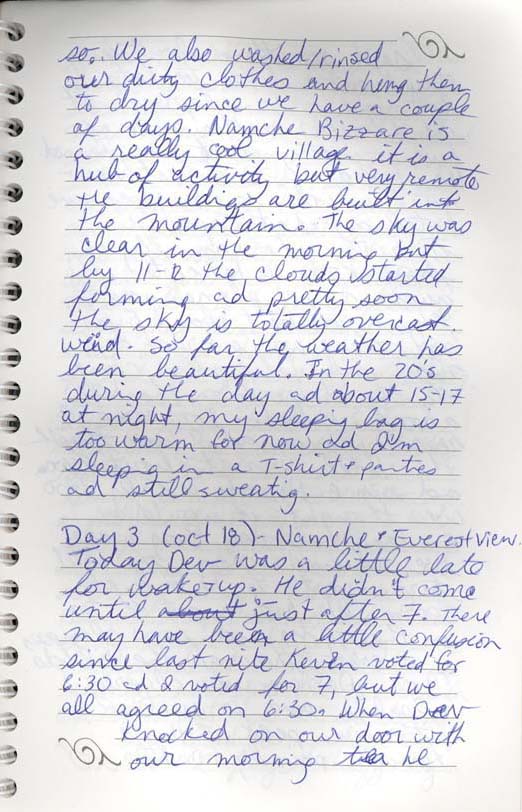 so. We also washed/rinsed
our dirty clothes and hung them
to dry since we have a couple
of days. Namche Bizzare is
a really cool village. it is a
hub of activity but very remote
the buildings are built into
the mountain. The sky was
clear in the morning but
by 11-12 the clouds started
forming ad pretty soon
the sky is totally overcast.
weird. So far the weather has
been beautiful. In the 20's
during the day ad about 15-17
at night, my sleeping bag is
too warm for now ad I'm
sleeping in a T-shirt + panties
ad still sweatig.
Day 3 (oct 18) - Namche + Everest View.
Today Dev was a little late
for wakeup. He didn't come
until about just after 7. There
may have been a little confusion
since last nite Kevin voted for
6:30 ad I voted for 7, but we
all agreed on 6:30. When Dev
knocked on our door with
our morning tea he